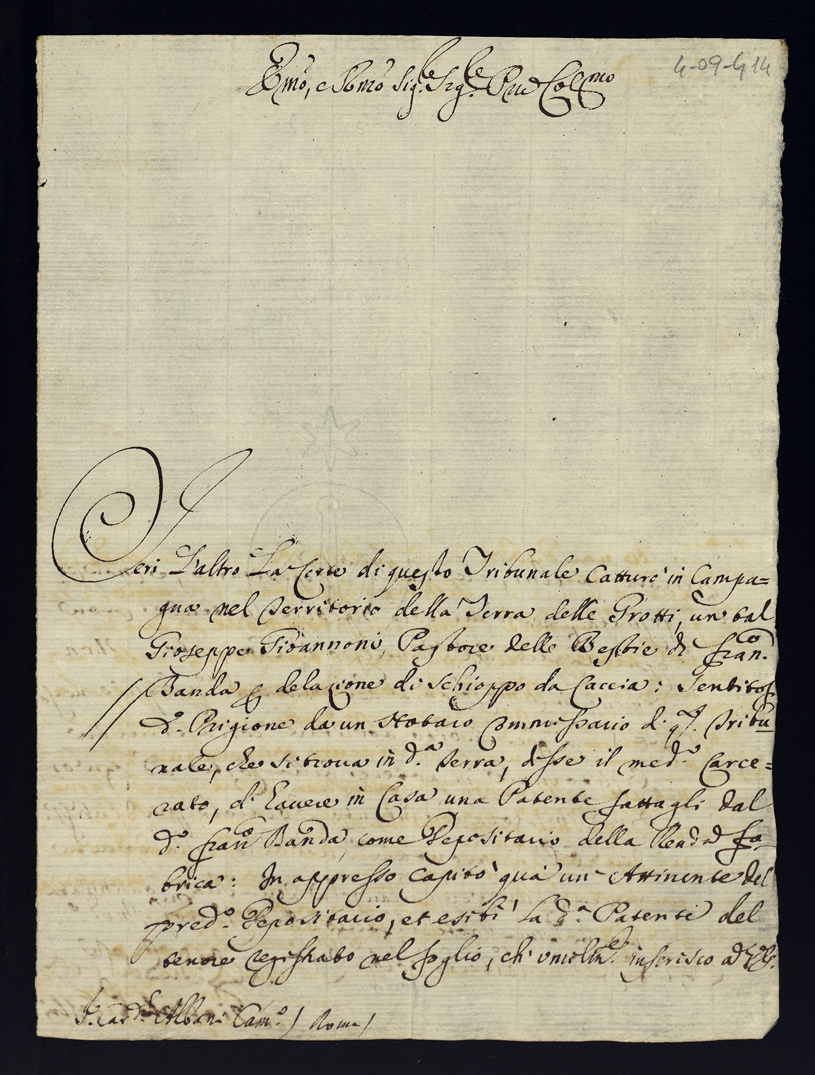 4-09-414
Em̃o, e Rm̃o Sig.re Sig.re Prn̄e Col͞mo
Jeri L'altro La Corte di questo Tribunale catturò in Campa=
gna nel Territorio della Terra delle Grotti, un tal
Gioseppe Gioannoni, Pastore delle Bestie di Fran.co
Banda p delazione di schioppo da Caccia: Sentitosi
d.o Prigione da un Notaro Commissario di q.o Tribu
nale, che si trova in d.a Terra, disse il med.o Carce=
rato, d'havere in Casa una Patente fattagli dal
d.o Fran.co Banda, come Depositario della Revd.a Fa=
brica: In appresso capitò quà un Attinente del
pred.o Depositario, et esibì La d.a Patente del
tenore registrato nel foglio, ch' inserisco ad
S. Card.le Albani Cam.o / Roma /